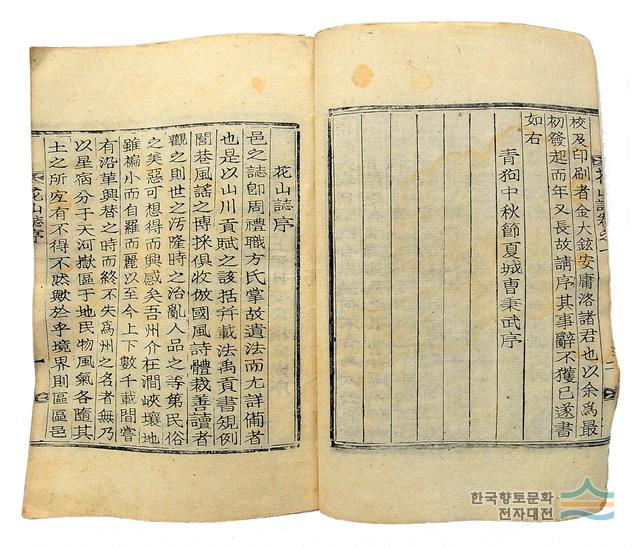 校及印刷者金大鉉安庸洛諸君也以余爲最
初發起而年又長故請序其事辭不獲已遂書
如右
青狗中秋節夏城曺秉武序
花山誌序
邑之誌卽周禮職方氏掌故遺法而尤詳備者
也是以山川貢賦之該括幷載法禹貢書規例
閭巷風謠之博採俱收倣國風詩體裁善讀者
觀之則世之汚隆時之治亂人品之等第民俗
之美惡可想得而興感矣吾州介在澗峽壤地
雖褊小而自羅而麗以至今上下數千載間嘗
有沿革興替之時而終不失爲州之名者無乃
以星宿分于天河嶽區于地民物風氣各隨其
土之所宜有不得不然歟於乎境界則區區邑
花山誌序
한국향토문화
전자대전